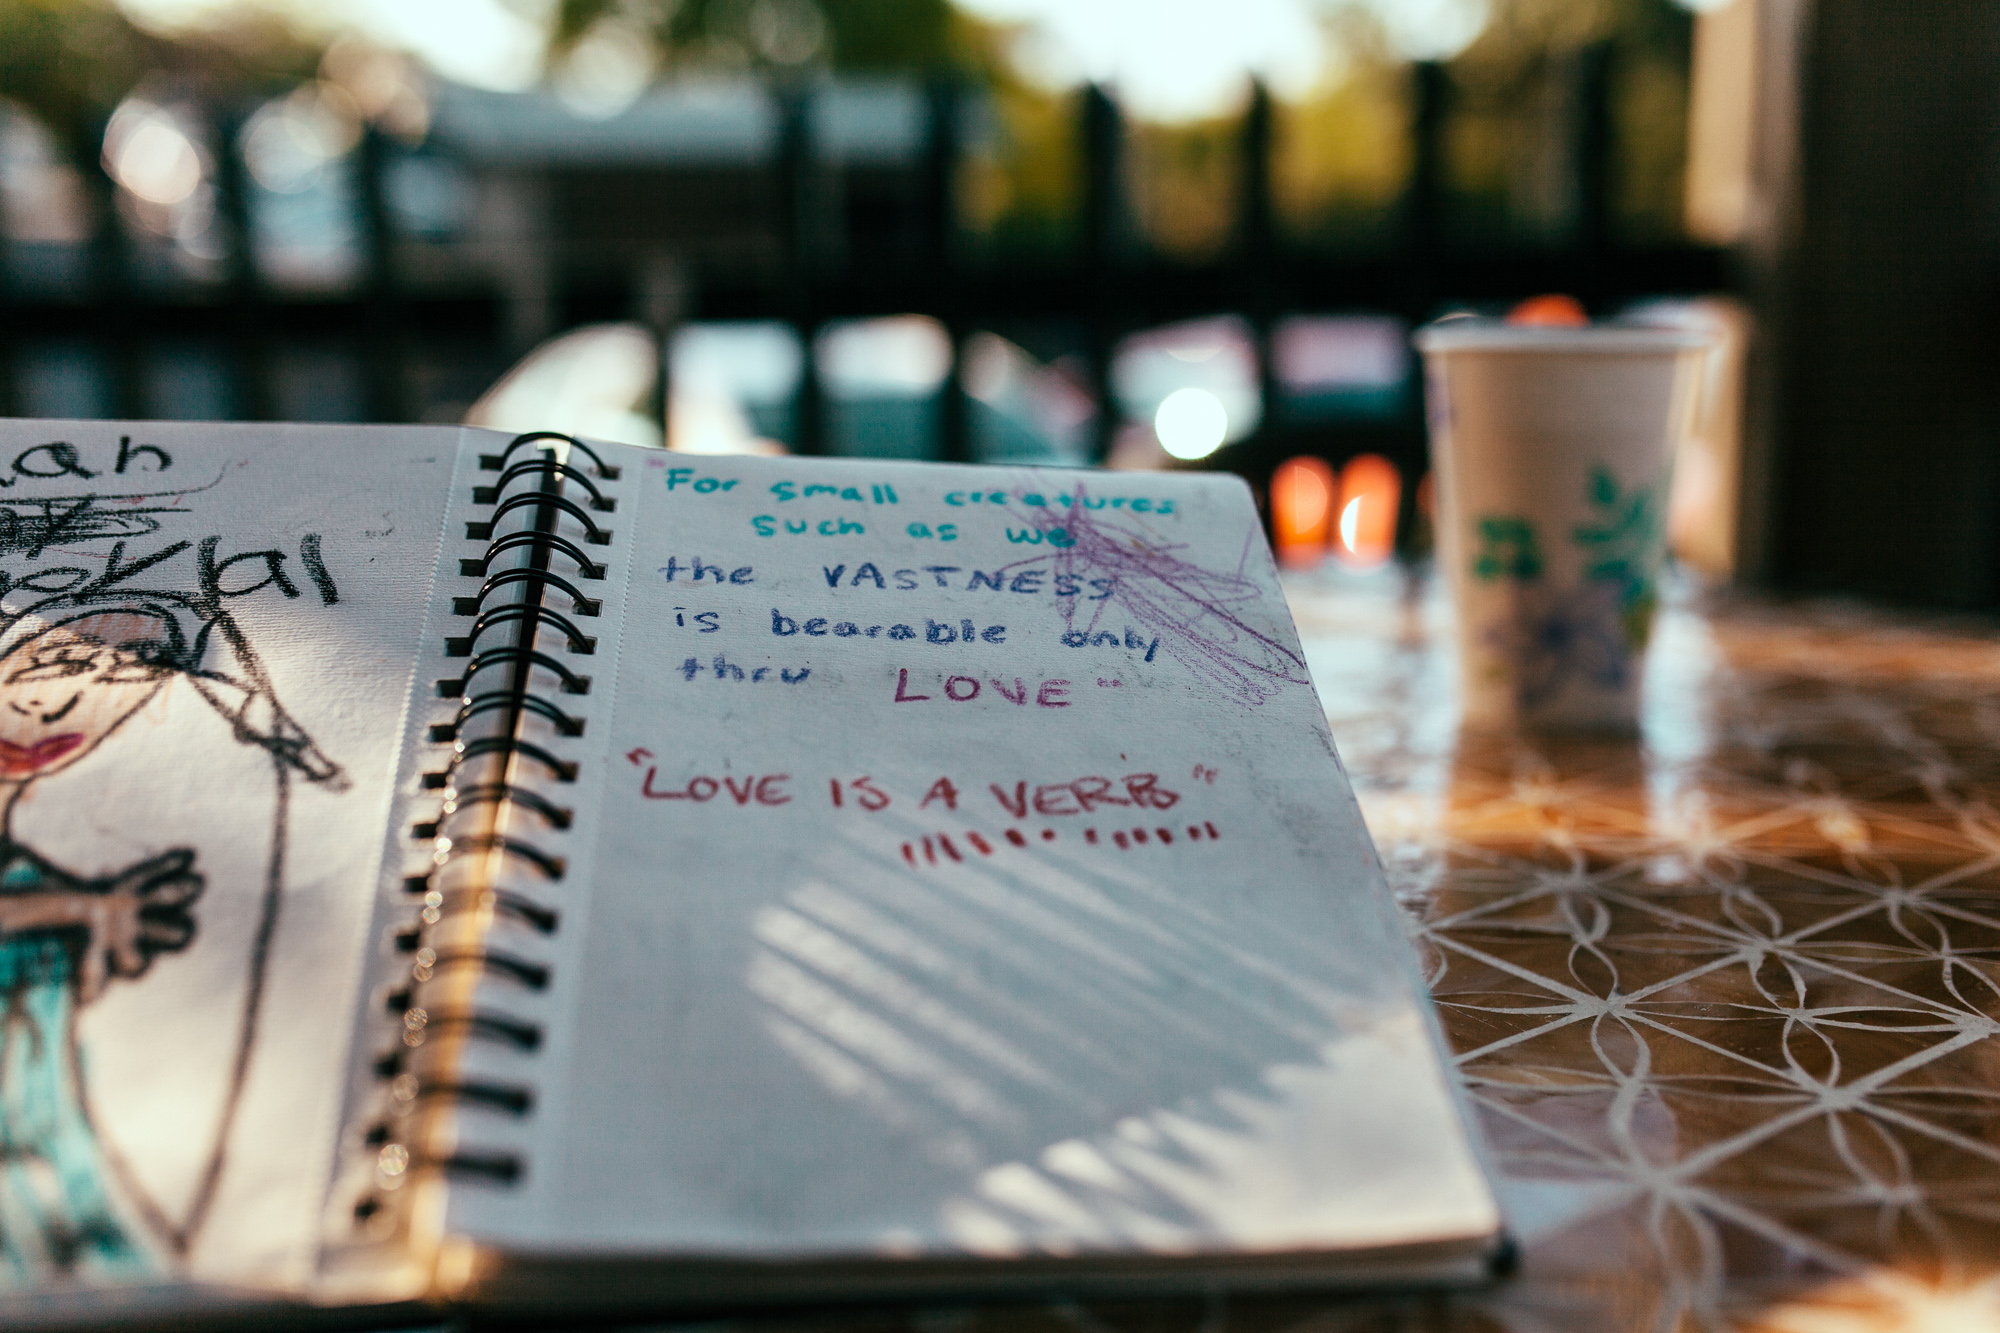 "For small creatures
such as we
the VASTNESS
is bearable only
thru LOVE"
"LOVE IS A VERB"